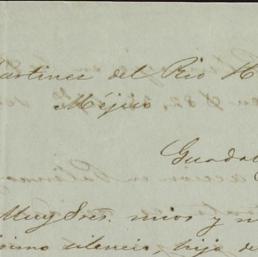 Martinez del Rio H
Méjico
Guadal
Muy Sres. mios y
silencio, hijo de